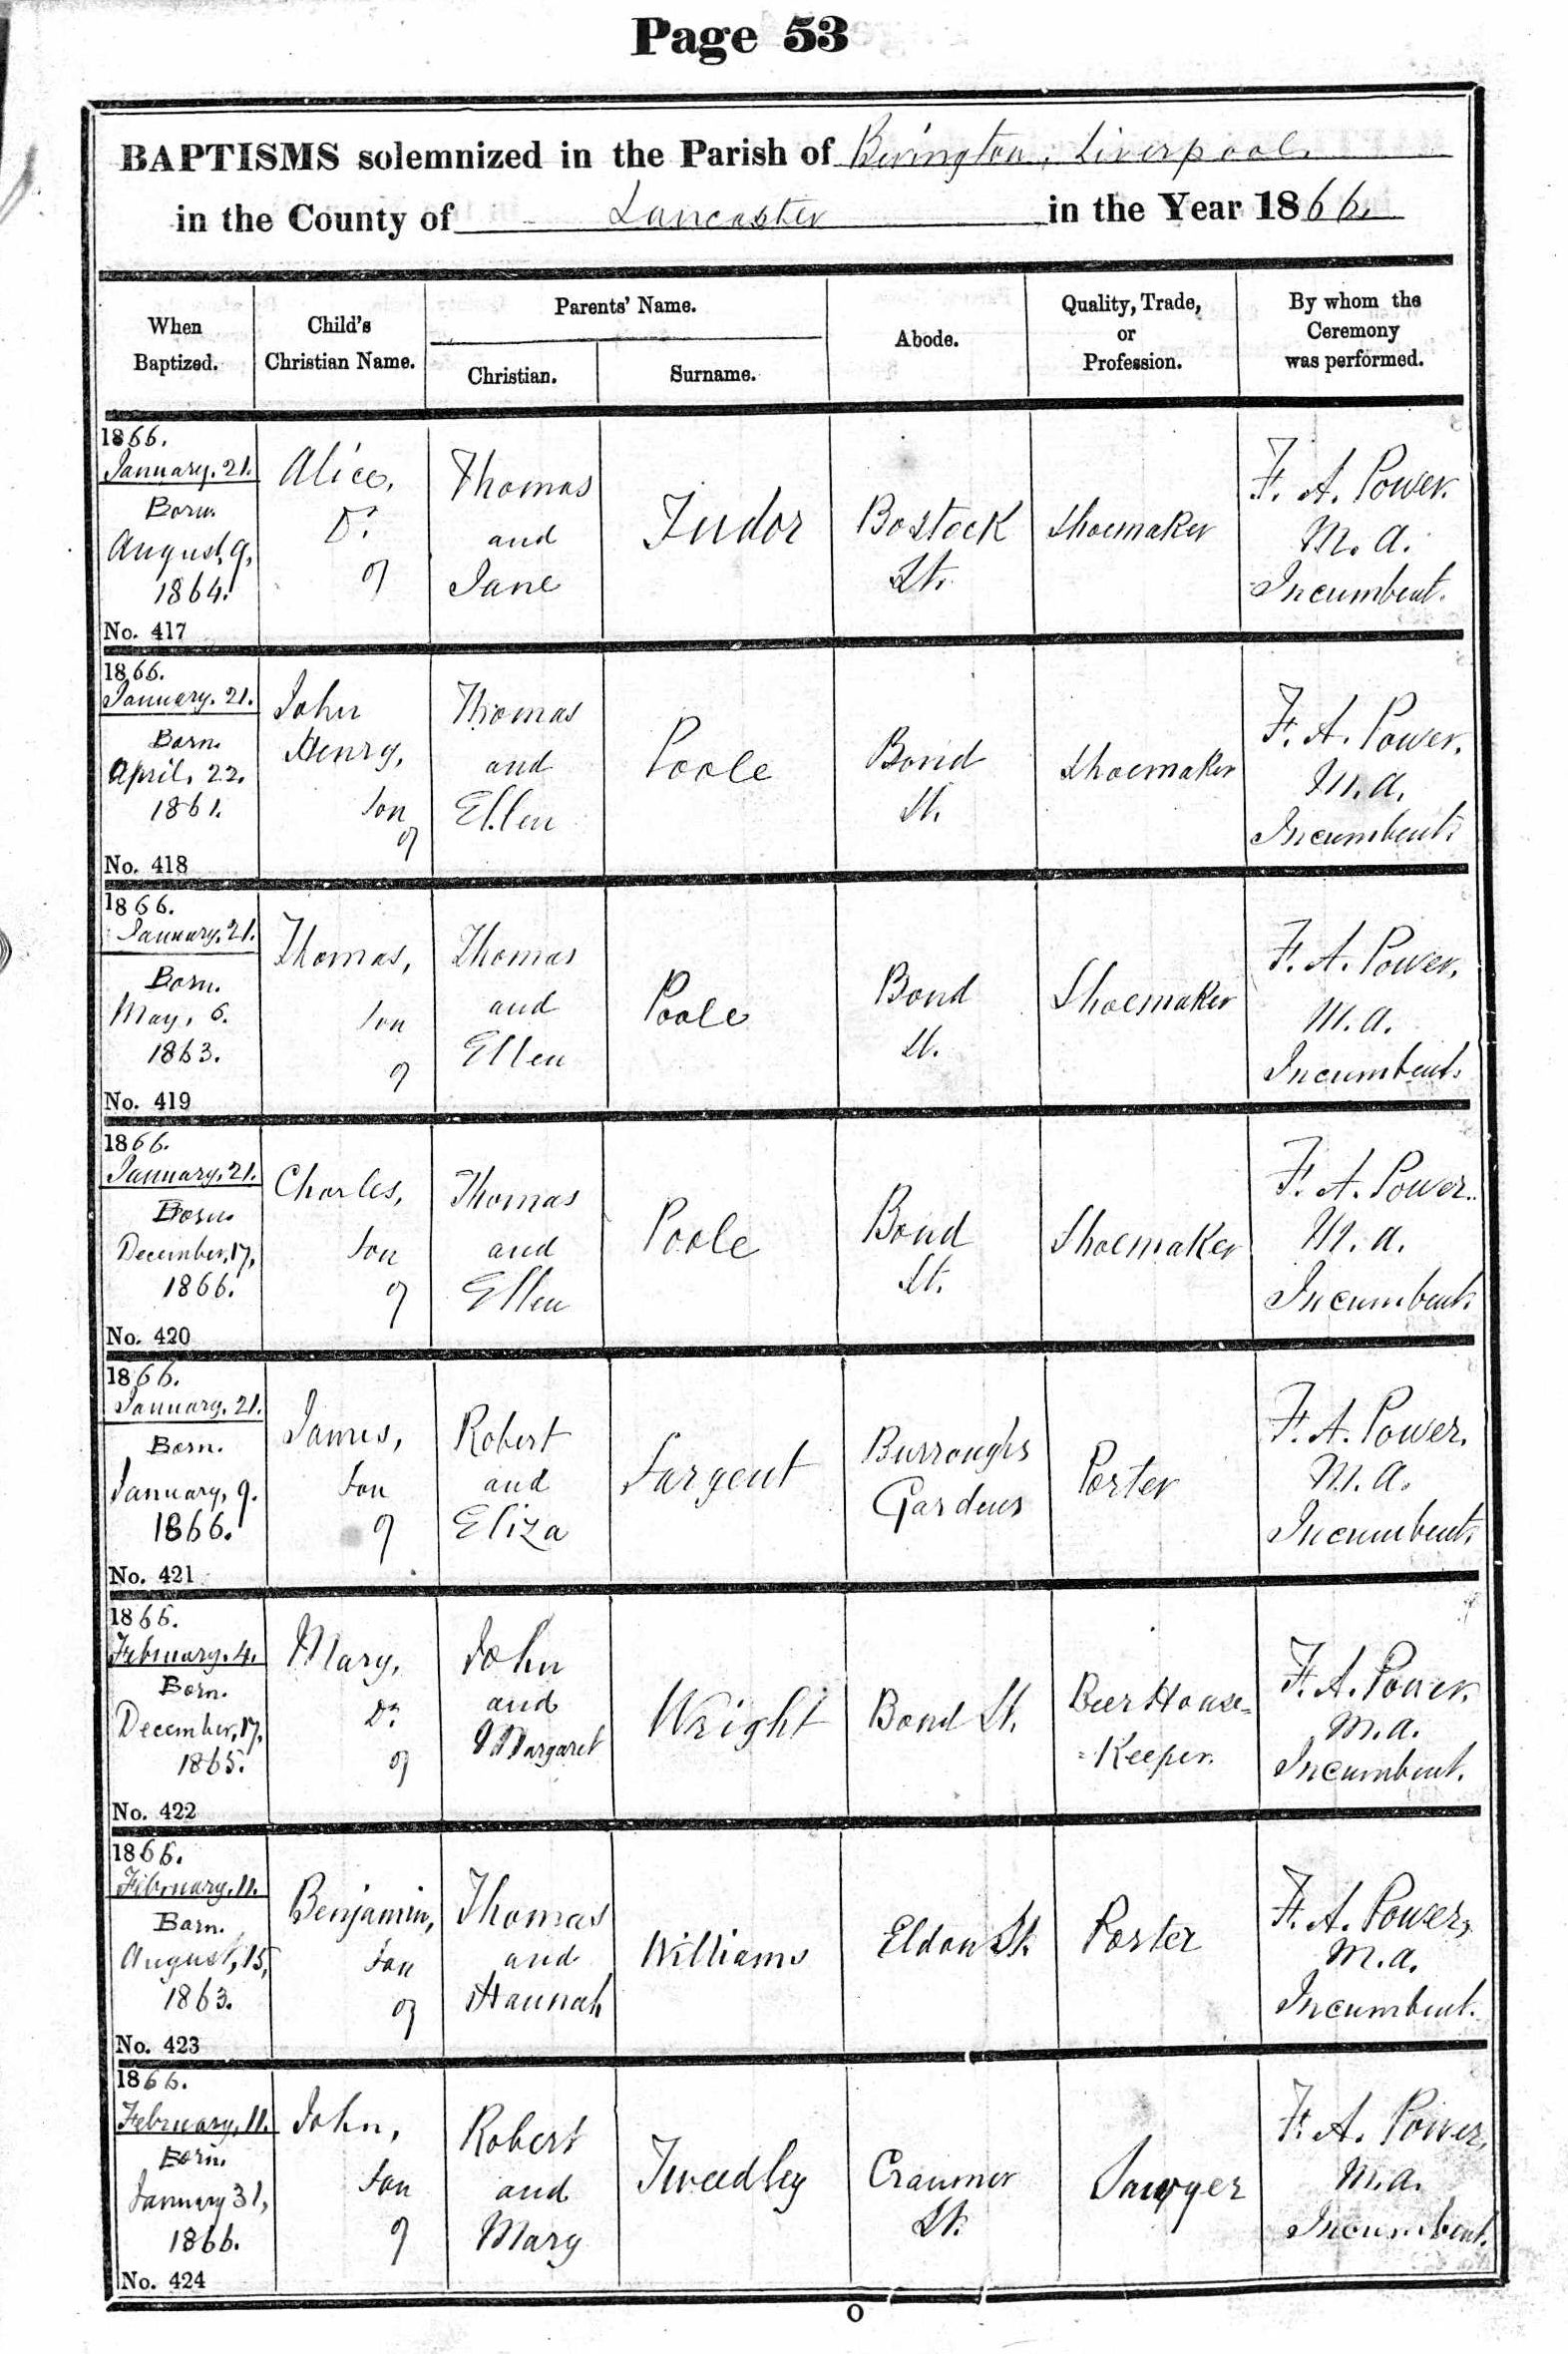 Page 53
BAPTISMS solemnized in the Parish of Bevington, Liverpool.
in the County of Lancaster in the Year 1866.
When Baptized.
Child's Christian Name.
Parents' Name.
Christian.
Surname.
Abode.
Quality, Trade, or Profession.
By whom the Ceremony was performed.
1866.
January. 21.
Born.
August, 9,
1864.
No. 417
Alice,
Dr.
of
Thomas
and
Jane
Tudor
Bostock
St.
Shoemaker
F. A. Power.
M. A.
Incumbent.
1866.
January. 21.
Born.
April, 22.
1861.
No. 418
John
Henry,
Son
of
Thomas
and
Ellen
Poole
Bond
St.
Shoemaker
F. A. Power,
M. A.
Incumbent.
1866.
January. 21.
Born.
May, 6.
1863.
No. 419
Thomas,
Son
of
Thomas
and
Ellen
Poole
Bond
St.
Shoemaker
F. A. Power,
M. A.
Incumbent.
1866.
January, 21.
Born.
December, 17,
1866.
No. 420
Charles,
Son
of
Thomas
and
Ellen
Poole
Bond
St.
Shoemaker
F. A. Power.
M. A.
Incumbent.
1866.
January. 21.
Born.
January, 9.
1866.
No. 421
James,
Son
of
Robert
and
Eliza
Sargent
Burroughs
Gardens
Porter
F. A. Power,
M. A.
Incumbent.
1866.
February. 4.
Born.
December, 17,
1865.
No. 422
Mary,
Dr.
of
John
and
Margaret
Wright
Bond St.
Beer House=
=Keeper.
F. A. Power.
M. A.
Incumbent.
1866.
February. 11.
Born.
August, 15,
1863.
No. 423
Benjamin,
Son
of
Thomas
and
Hannah
Williams
Eldon St.
Porter
F. A. Power,
M. A.
Incumbent.
1866.
February, 11.
Born.
January 31,
1866.
No. 424
John,
Son
of
Robert
and
Mary
Tweedley
Cranmer
St.
Sawyer
F. A. Power,
M. A.
Incumbent.
O